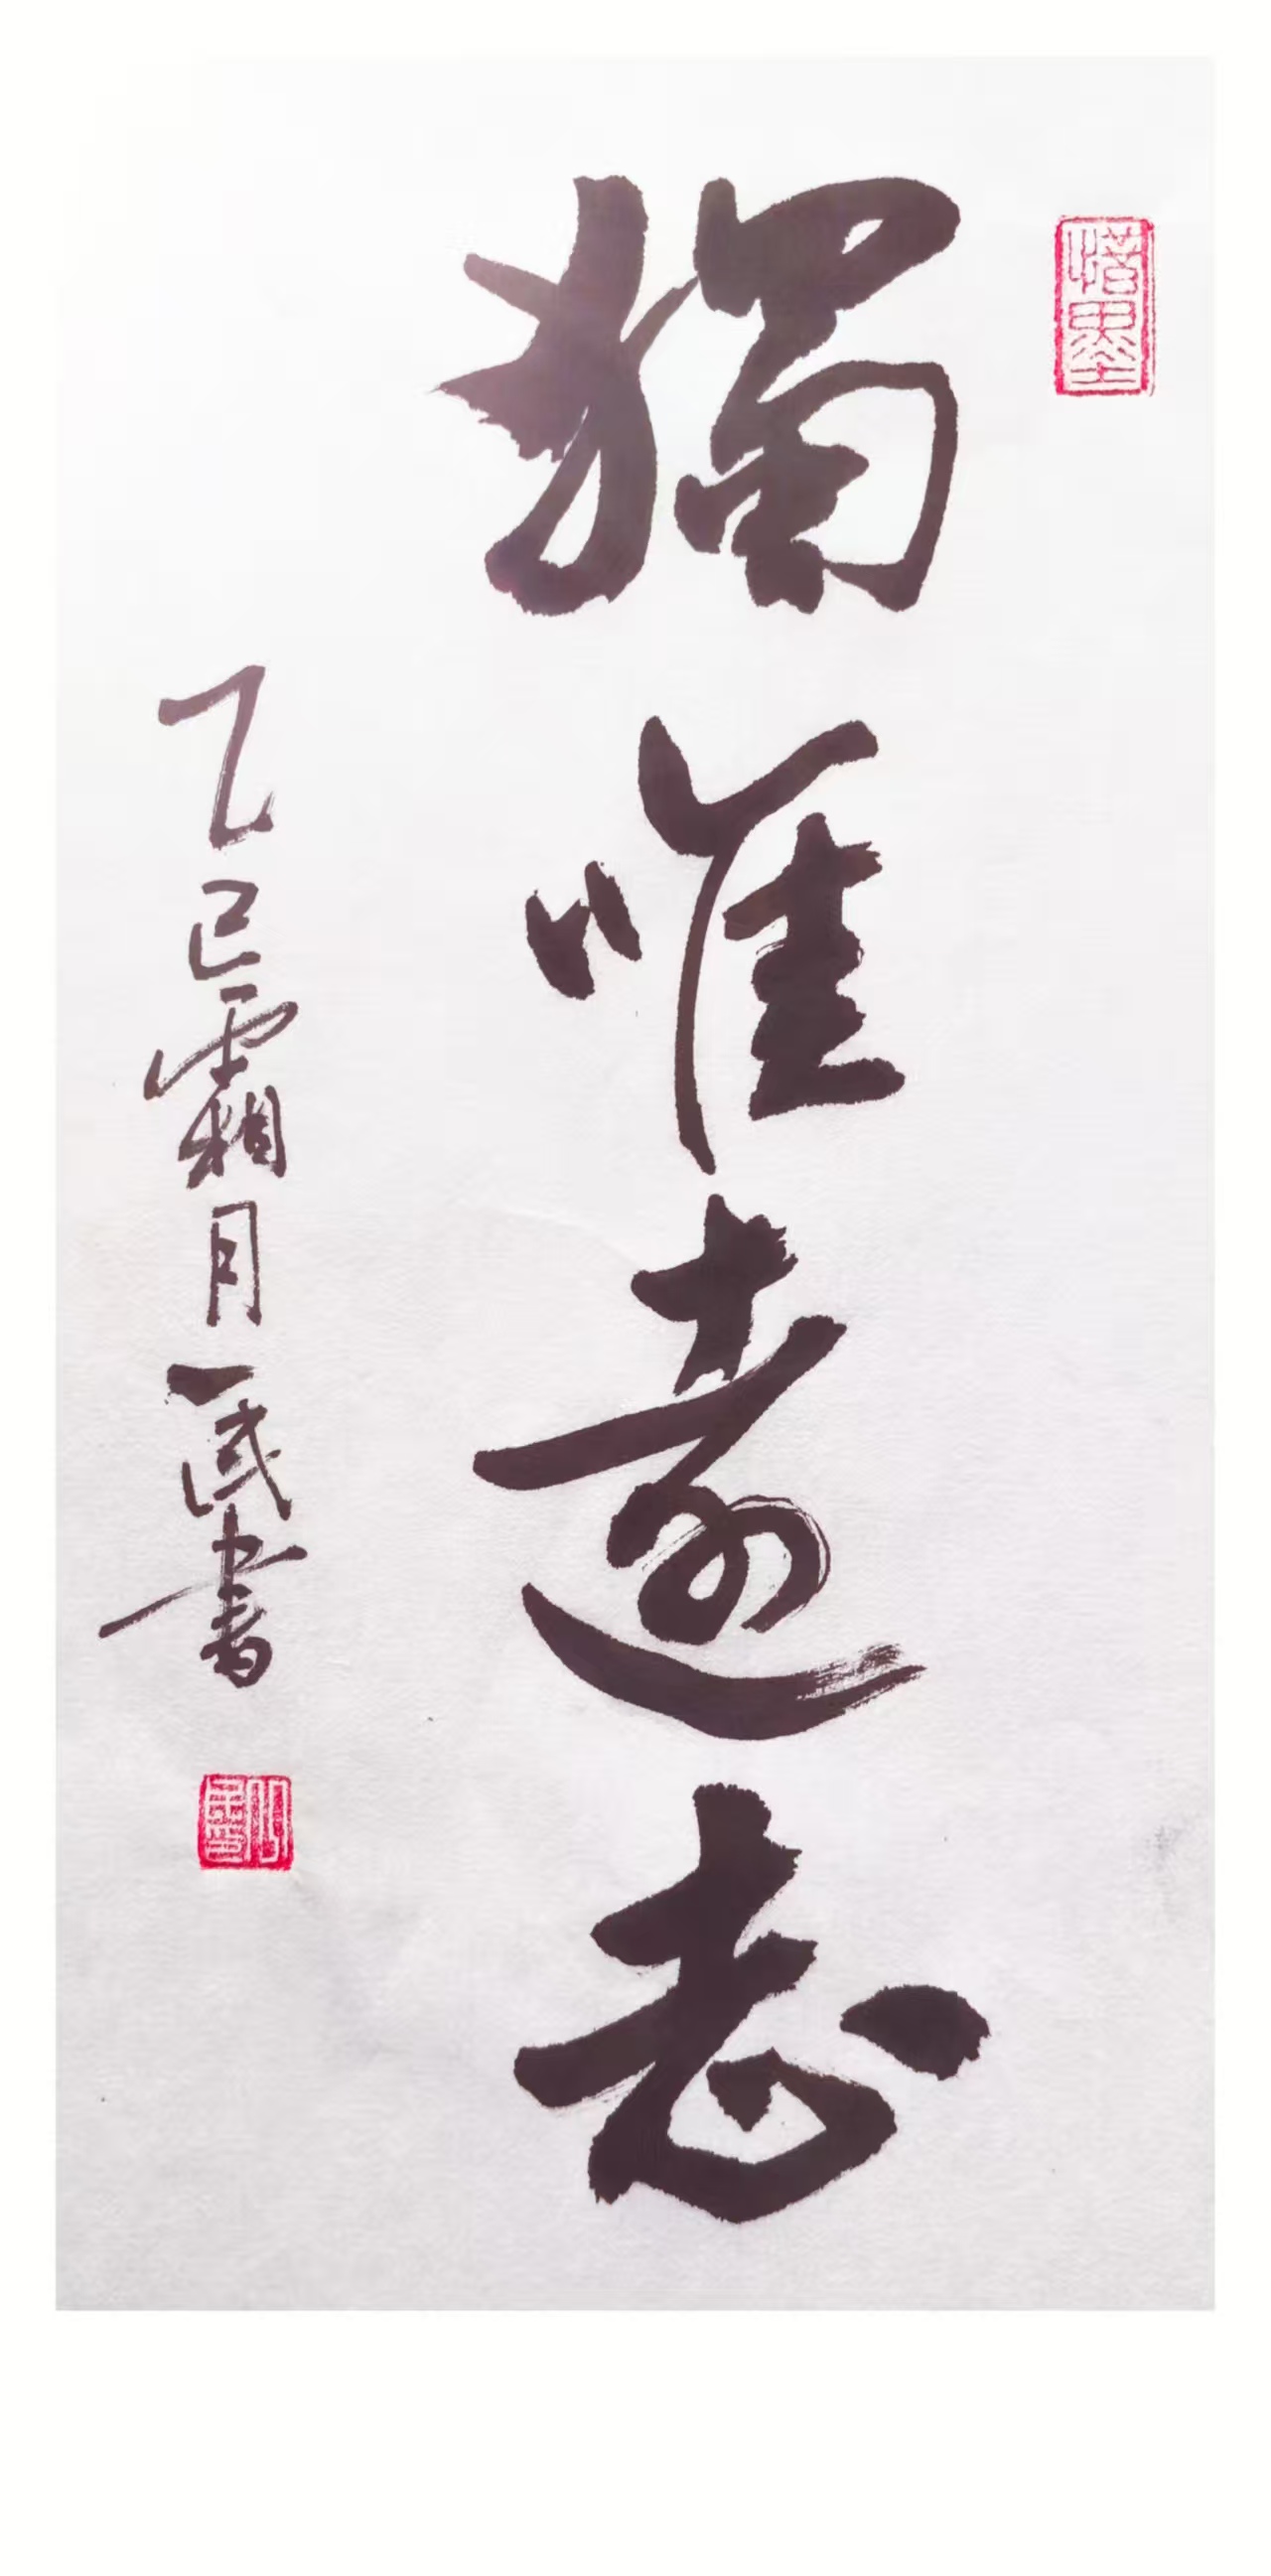 獨唯遠志
乙巳霜月一民書